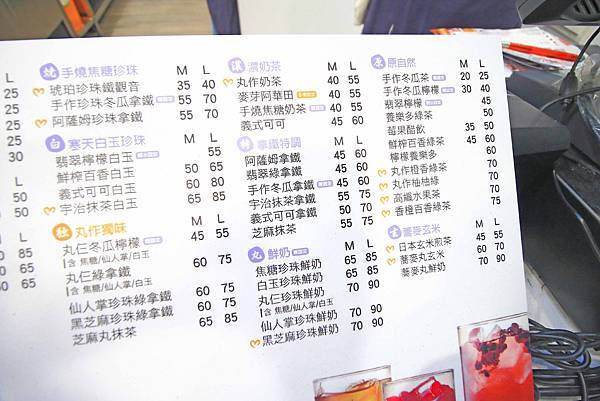 L
25
25
25
30
L
50
50
L
85
85
燒 手燒焦糖珍珠 M L
琥珀珍珠鐵觀音 35 40
手作珍珠冬瓜拿鐵 55 70
阿薩姆珍珠拿鐵 55 70
白 寒天白玉珍珠 M L
翡翠檸檬白玉 55
鮮榨百香白玉 50 65
義式可可白玉 60 80
宇治抹茶白玉 65 85
丸作獨味 M L
丸仁冬瓜檸檬 45 55
含 焦糖/仙人掌/白玉
丸仁綠拿鐵 60 75
含 焦糖/仙人掌/白玉
仙人掌珍珠綠拿鐵 60 75
黑芝麻珍珠綠拿鐵 65 85
芝麻丸抹茶
濃 濃奶茶 M L
丸作奶茶 40 55
麥芽阿華田 40 55
手燒焦糖奶茶 40 55
義式可可 45 60
拿鐵特調 M L
阿薩姆拿鐵 45 60
翡翠綠拿鐵 45 60
手作冬瓜拿鐵 45 60
宇治抹茶拿鐵 55 75
義式可可拿鐵 50 70
芝麻抹茶 55 75
丸 鮮奶 M L
焦糖珍珠鮮奶 65 85
白玉珍珠鮮奶 65 85
丸仁珍珠鮮奶 70 90
含 焦糖/仙人掌/白玉
仙人掌珍珠鮮奶 70 90
黑芝麻珍珠鮮奶 70 90
原 原自然 M L
手作冬瓜茶 20 25
手作冬瓜檸檬 30 40
翡翠檸檬 45
養樂多綠茶 50
莓果醋飲 35 50
鮮榨百香綠茶 45 65
檸檬養樂多 60
丸作橙香綠茶 70
丸作柚柚綠 70
高纖水果茶 70
香橙百香綠茶 75
蕎麥玄米 M L
日本玄米煎茶 45 55
蕎麥丸玄米 60 70
蕎麥丸鮮奶 70 90